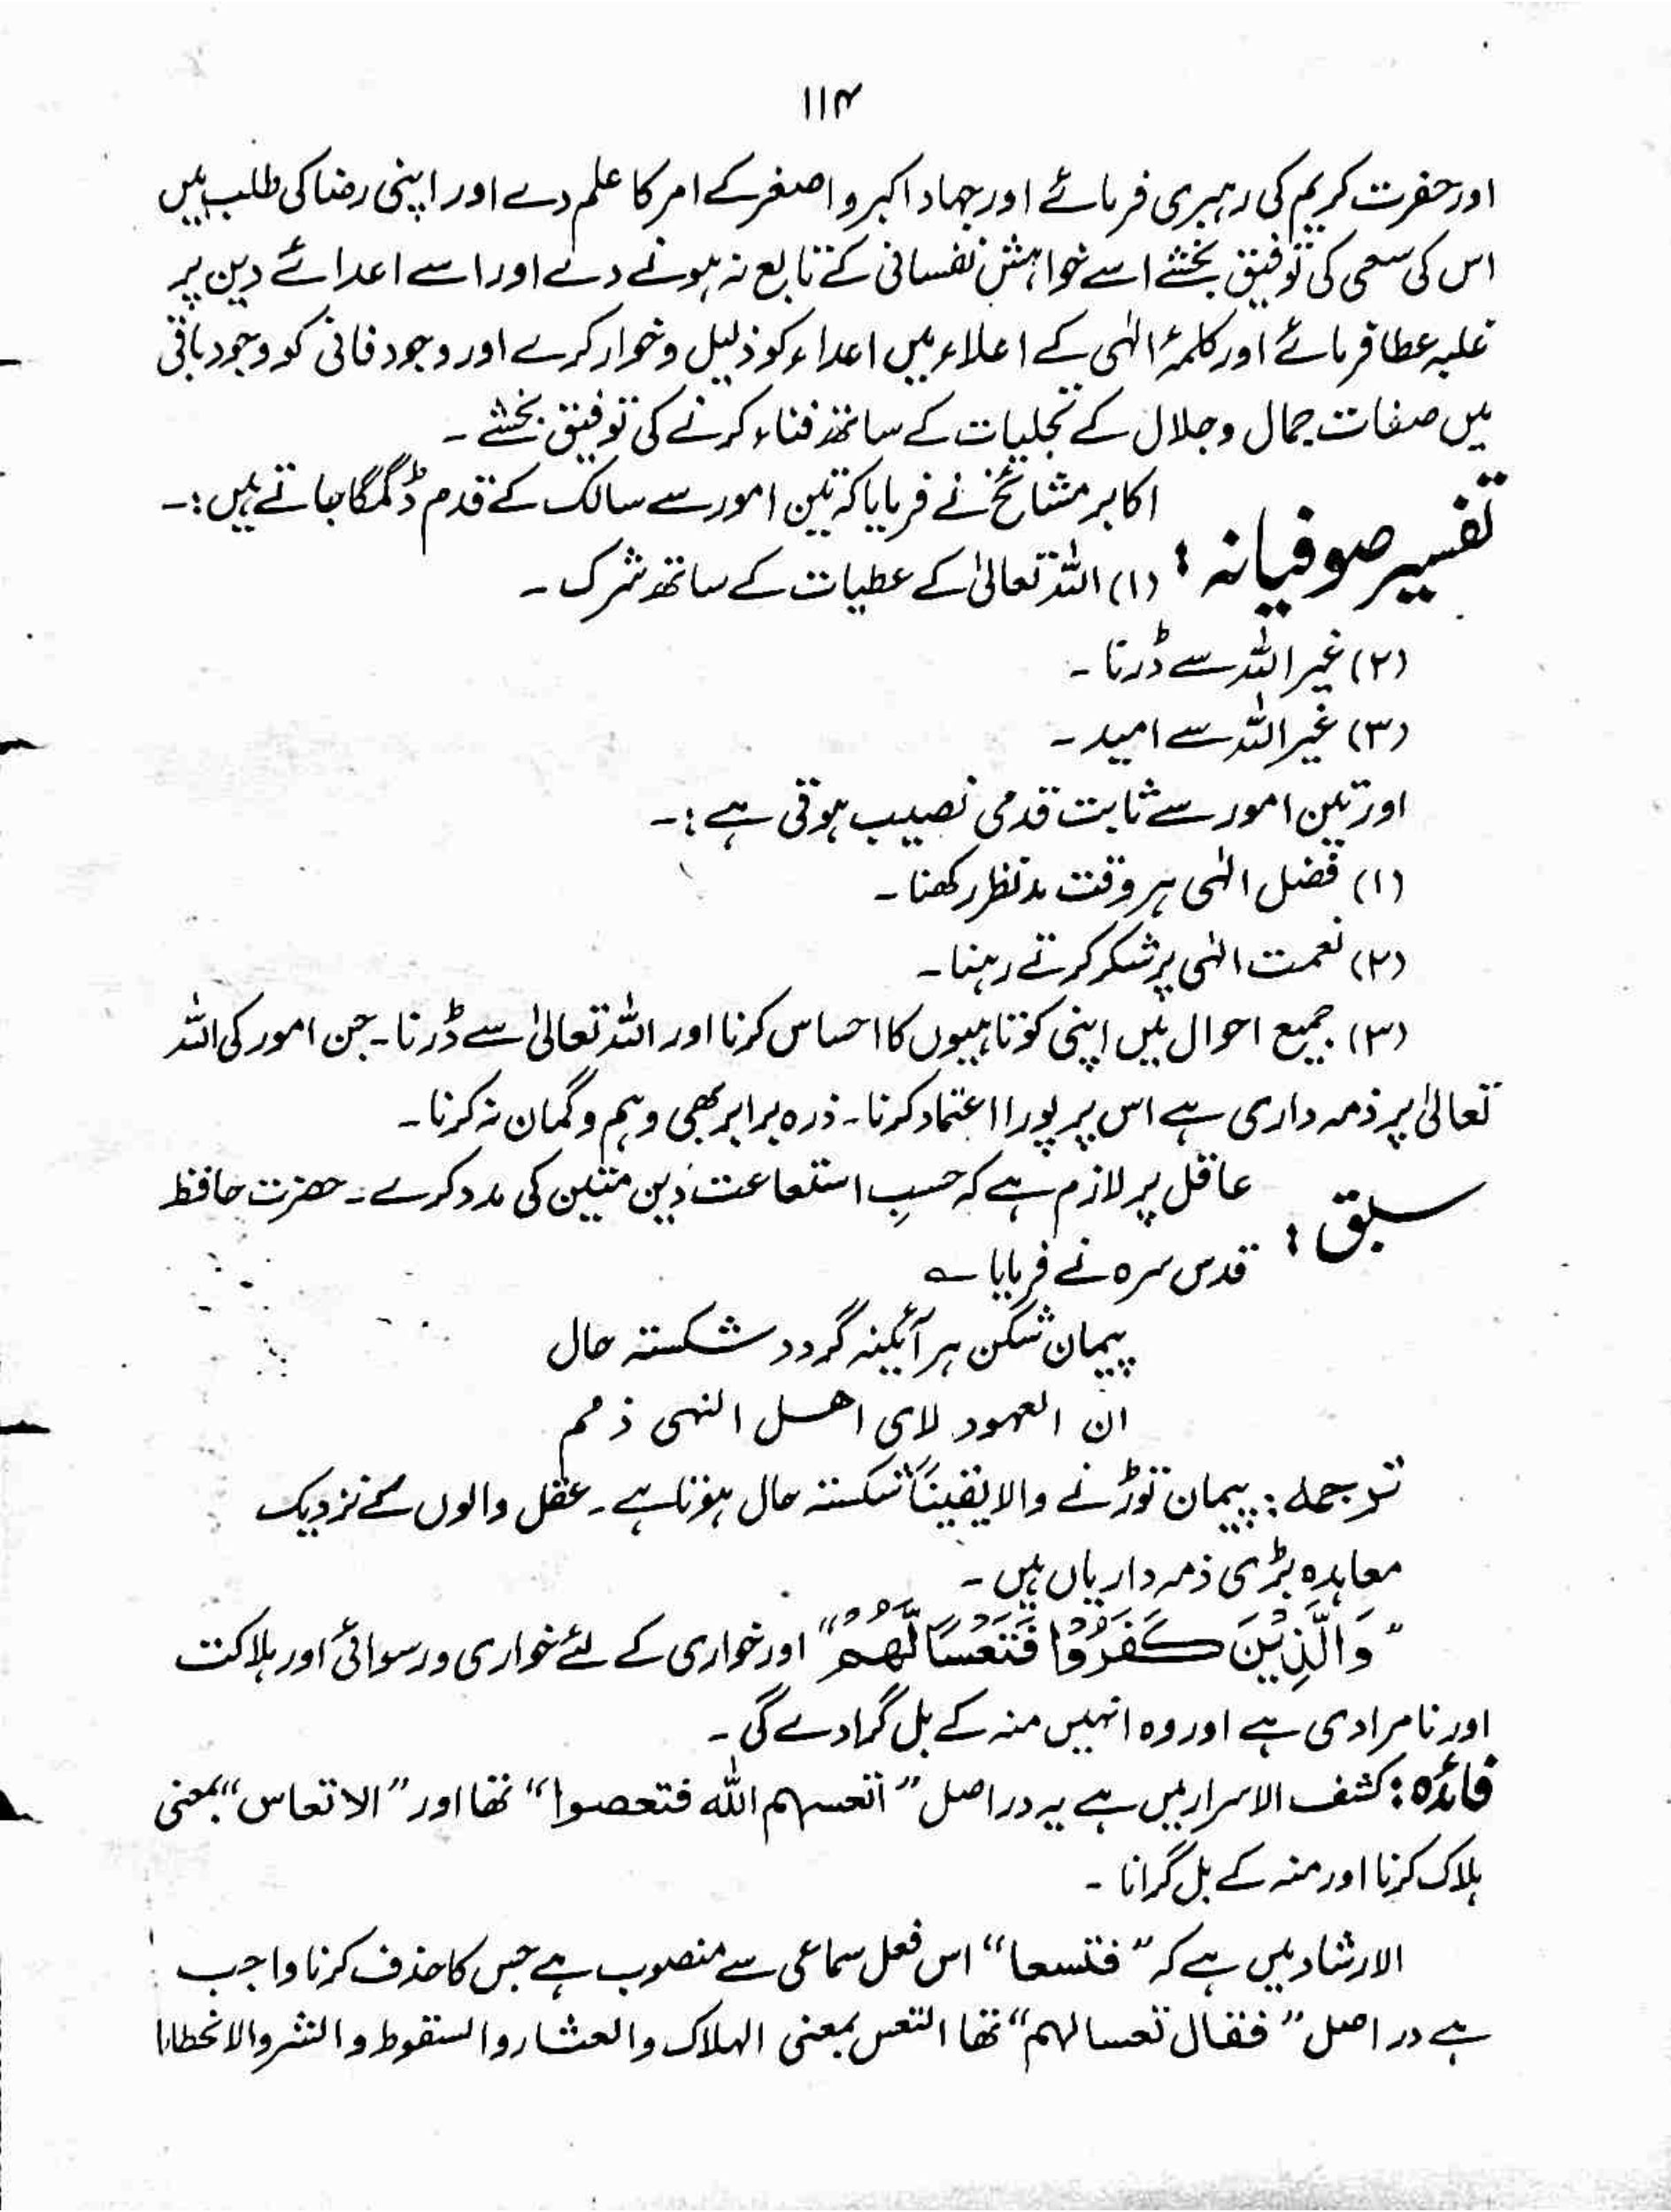 ۱۱۴
اور حضرت کریم کی رہبری فرمائے اور جہاد اکبر و اصغر کے امر کا علم دے اور اپنی رضا کی طلب میں
اس کی سعی کی توفیق بخشے اسے خواہش نفسانی کے تابع نہ ہونے دے اور اسے اعدائے دین پر
غلبہ عطا فرمائے اور کلمۂ الٰہی کے اعلاء میں اعداء کو ذلیل و خوار کرے اور وجود فانی کو وجود باقی
میں صفات جمال و جلال کے تجلیات کے ساتھ فناء کرنے کی توفیق بخشے ۔
تفسیر صوفیانہ : اکابر مشائخ نے فرمایا کہ تین امور سے سالک کے قدم ڈگمگا جاتے ہیں :۔
(۱) اللہ تعالیٰ کے عطیات کے ساتھ شرک ۔
(۲) غیر اللہ سے ڈرنا ۔
(۳) غیر اللہ سے امید ۔
اور تین امور سے ثابت قدمی نصیب ہوتی ہے :۔
(۱) فضل الٰہی ہر وقت مدنظر رکھنا ۔
(۲) نعمت الٰہی پر شکر کرتے رہنا ۔
(۳) جمیع احوال میں اپنی کوتاہیوں کا احساس کرنا اور اللہ تعالیٰ سے ڈرنا ۔ جن امور کی اللہ
تعالیٰ پر ذمہ داری ہے اس پر پورا اعتماد کرنا ۔ ذرہ برابر بھی وہم و گمان نہ کرنا ۔
سبق : عاقل پر لازم ہے کہ حسبِ استطاعت دین متین کی مدد کرے ۔ حضرت حافظ
قدس سرہ نے فرمایا ؎
پیمان شکن ہر آئینہ گردد شکستہ حال
ان العہود لای اھل النہی ذمم
ترجمہ : پیمان توڑنے والا یقیناً شکستہ حال ہوتا ہے ۔ عقل والوں کے نزدیک
معاہدہ بڑی ذمہ داریاں ہیں ۔
” وَالَّذِیْنَ کَفَرُوْا فَتَعْسًا لَّھُمْ “ اور خواری کے لئے خواری و رسوائی اور ہلاکت
اور نامرادی ہے اور وہ انہیں منہ کے بل گرا دے گی ۔
فائدہ : کشف الاسرار میں ہے یہ دراصل ” اتعسہم اللہ فتعصوا “ تھا اور ” الاتعاس “ بمعنی
ہلاک کرنا اور منہ کے بل گرانا ۔
الارشاد میں ہے کہ ” فتسعا “ اس فعل سماعی سے منصوب ہے جس کا حذف کرنا واجب
ہے دراصل ” فقال تعسا لہم “ تھا التعس بمعنی الہلاک والعثار والسقوط والشر والانحطاط